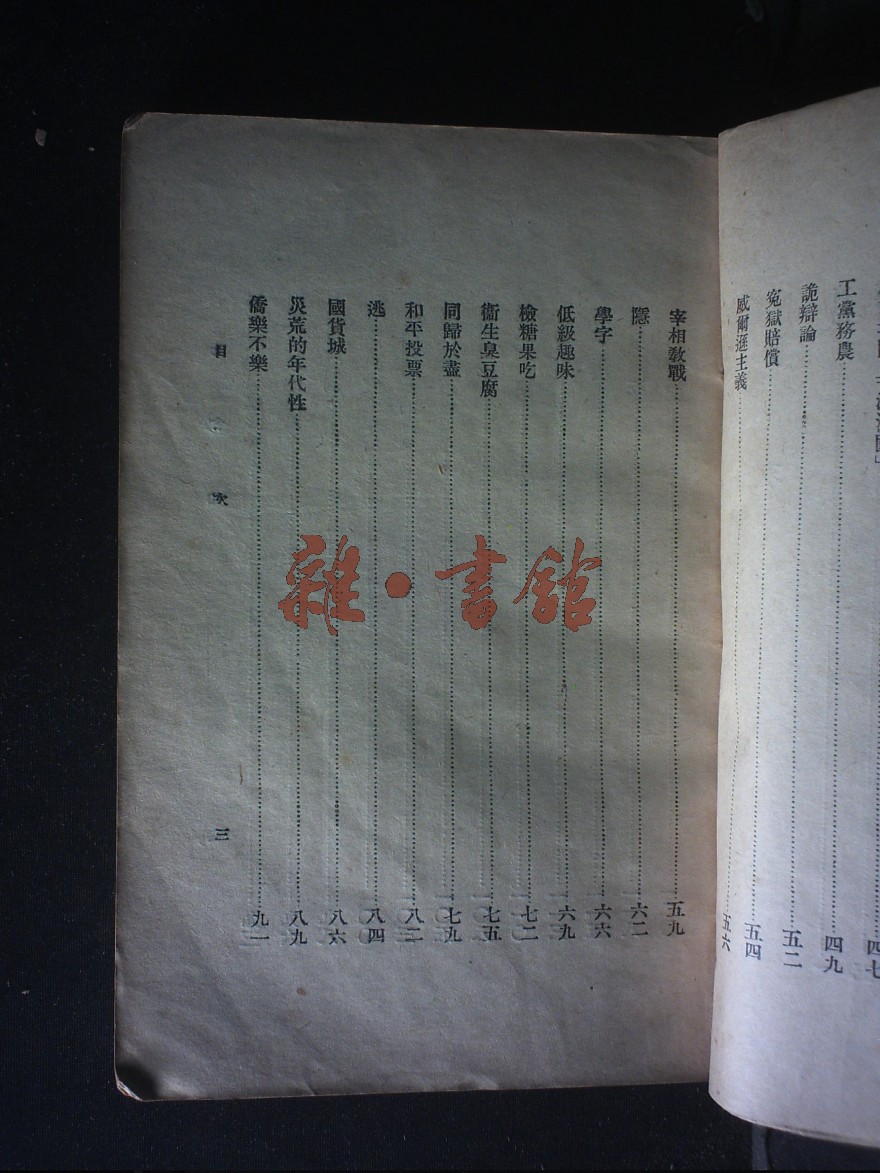 工黨務農……四九
詭辯論……五二
寃獄賠償……五四
威爾遜主義……五六
宰相教戰……五九
隱……六二
學字……六六
低級趣味……六九
檢糖果吃……七二
衞生臭豆腐……七五
同歸於盡……七九
和平投票……八二
逃……八四
國貨城……八六
災荒的年代性……八九
僑樂不樂……九一
目 次 三
雜·書館